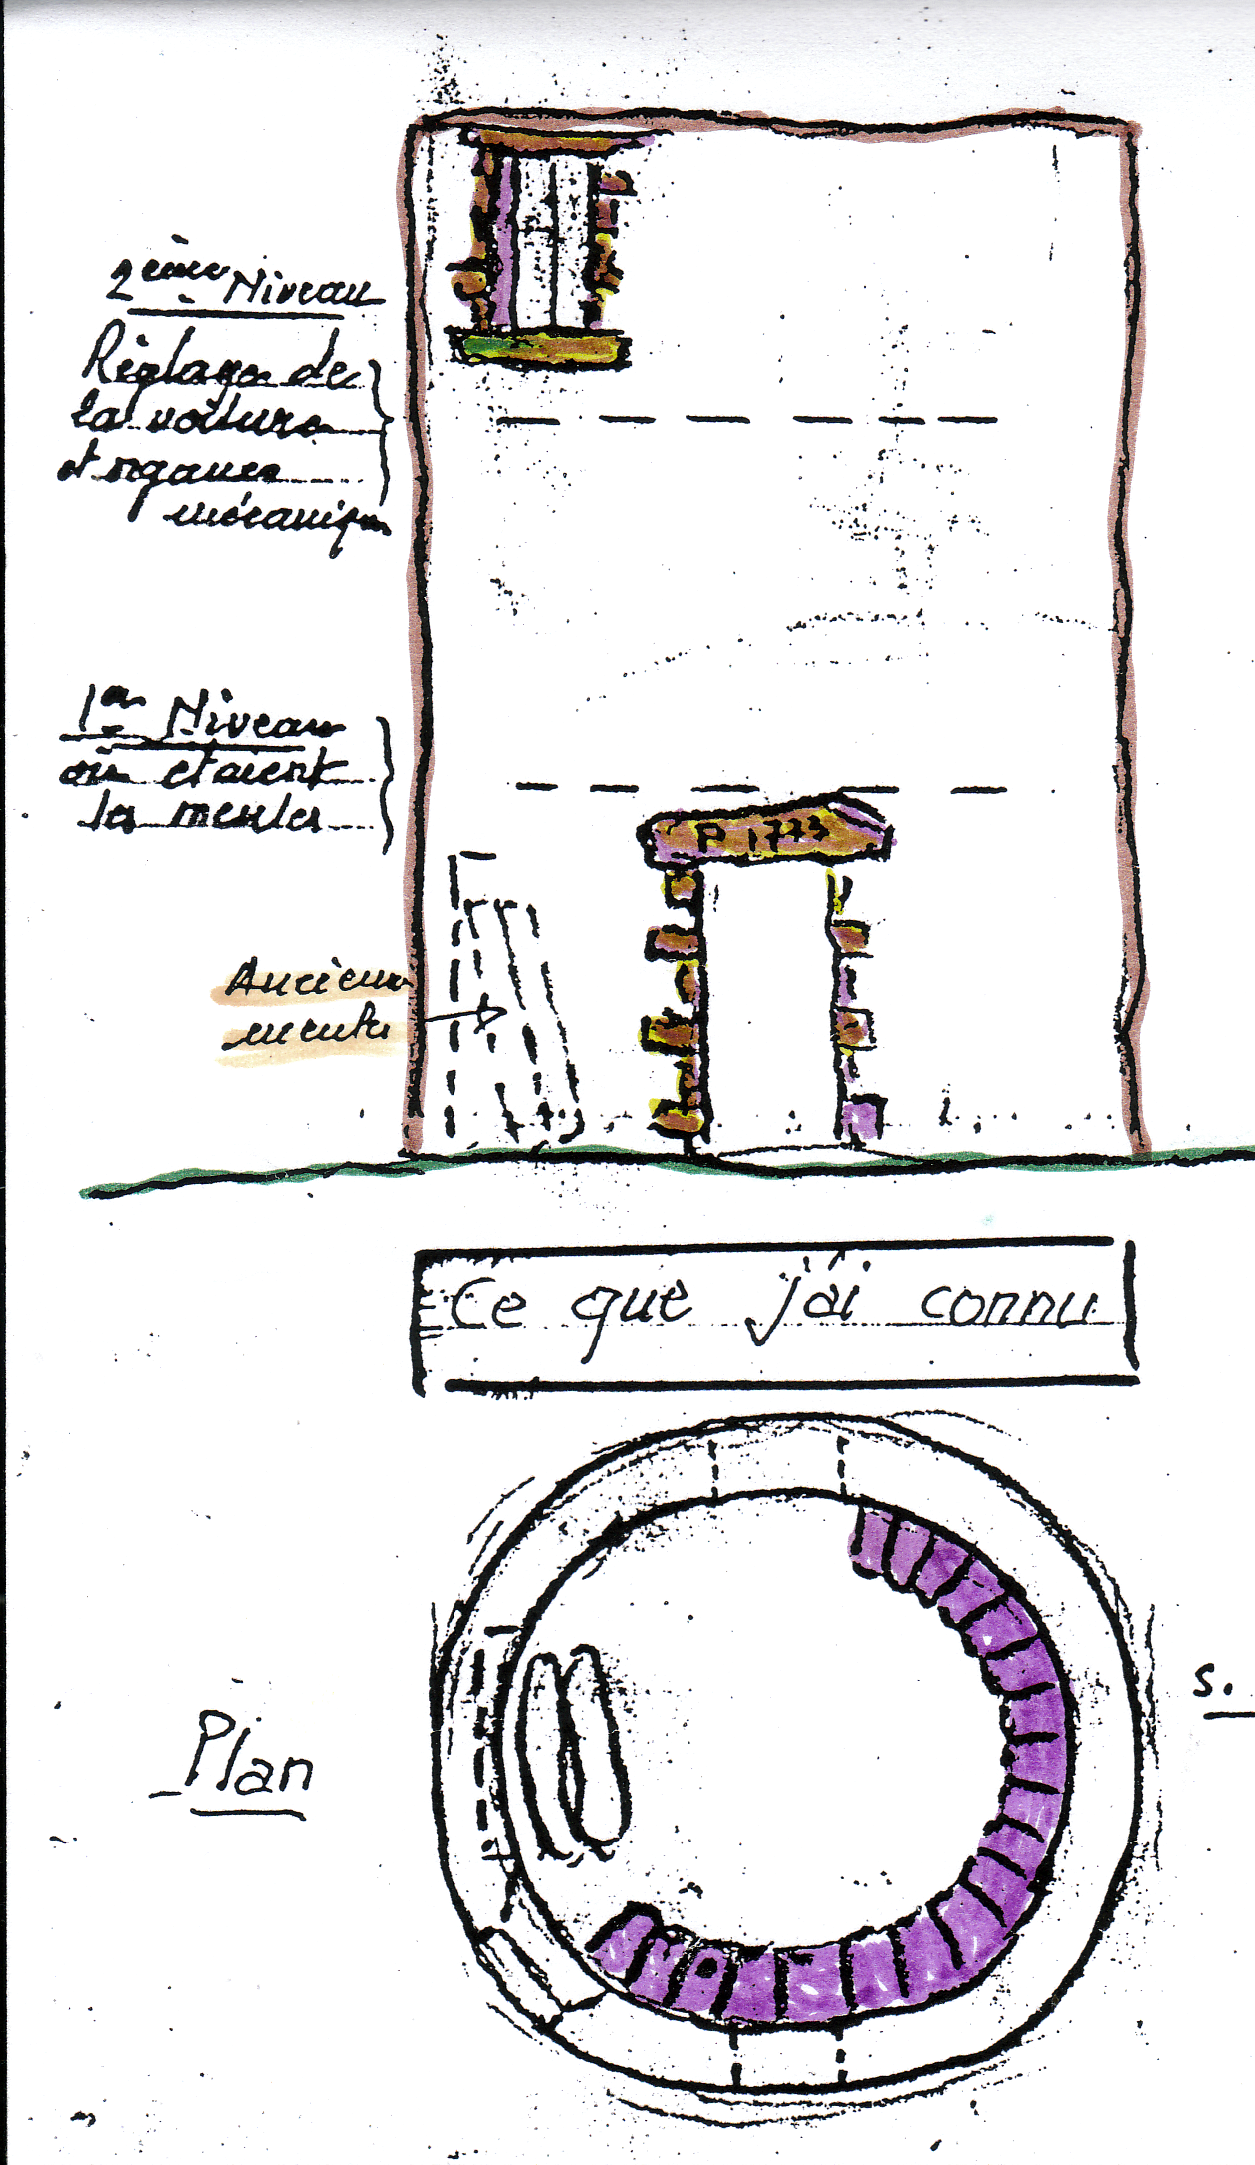 2ème Niveau
Réglage de
la voilure
et organes
mécaniques
1er Niveau
où etaient
les meules
P 1773
Ancienne
meules
Ce que j'ai connu
Plan
S.